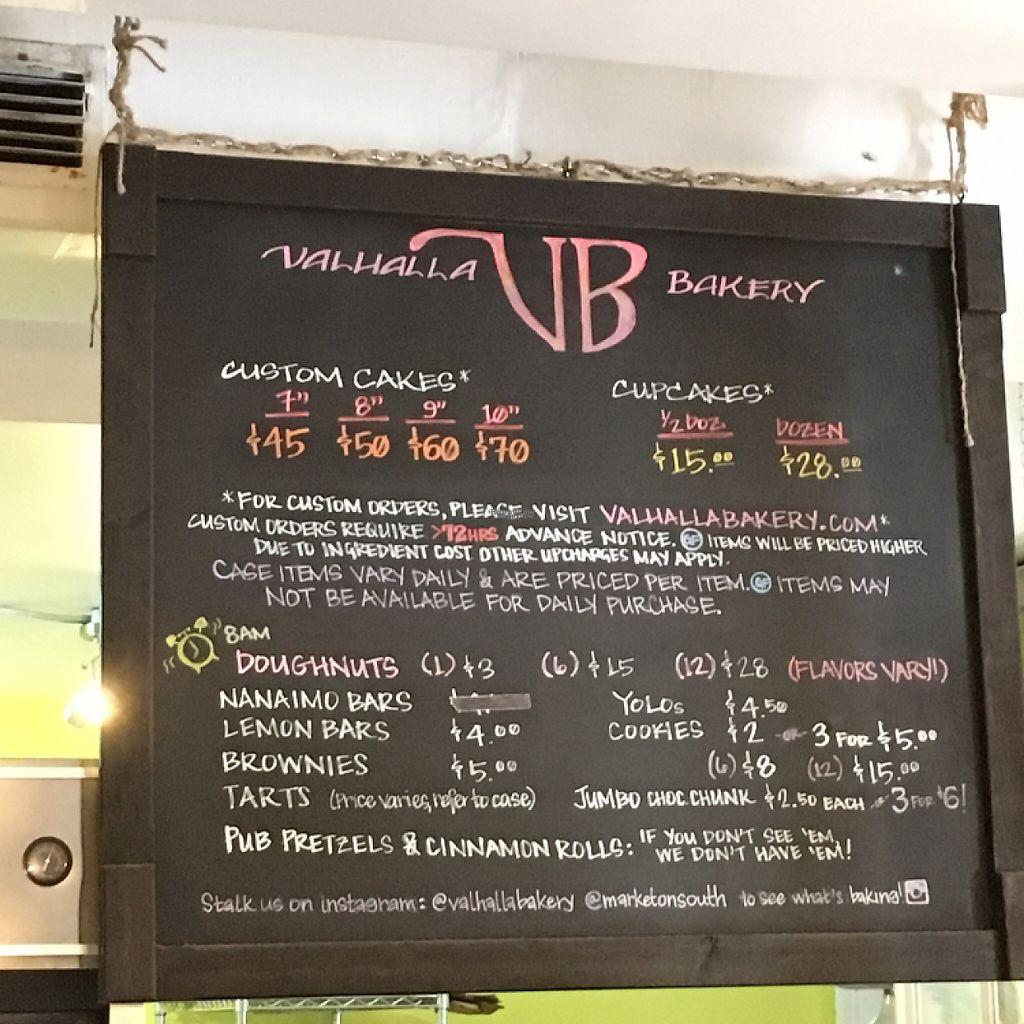 VALHALLA VB BAKERY
CUSTOM CAKES*
7" 8" 9" 10"
$45 $50 $60 $70
CUPCAKES*
1/2 DOZ. DOZEN
$15.00 $28.00
*FOR CUSTOM ORDERS, PLEASE VISIT VALHALLABAKERY.COM*
CUSTOM ORDERS REQUIRE >72HRS ADVANCE NOTICE. GF ITEMS WILL BE PRICED HIGHER
DUE TO INGREDIENT COST OTHER UPCHARGES MAY APPLY.
CASE ITEMS VARY DAILY & ARE PRICED PER ITEM. GF ITEMS MAY
NOT BE AVAILABLE FOR DAILY PURCHASE.
8AM
DOUGHNUTS (1) $3 (6) $15 (12) $28 (FLAVORS VARY!)
NANAIMO BARS
LEMON BARS $4.00
BROWNIES $5.00
TARTS (Price varies, refer to case)
YOLOs $4.50
COOKIES $2 or 3 FOR $5.00
(6) $8 (12) $15.00
JUMBO CHOC. CHUNK $2.50 EACH or 3 FOR $6!
PUB PRETZELS & CINNAMON ROLLS: IF YOU DON'T SEE 'EM,
WE DON'T HAVE 'EM!
Stalk us on instagram: @valhallabakery @marketonsouth to see what's baking!